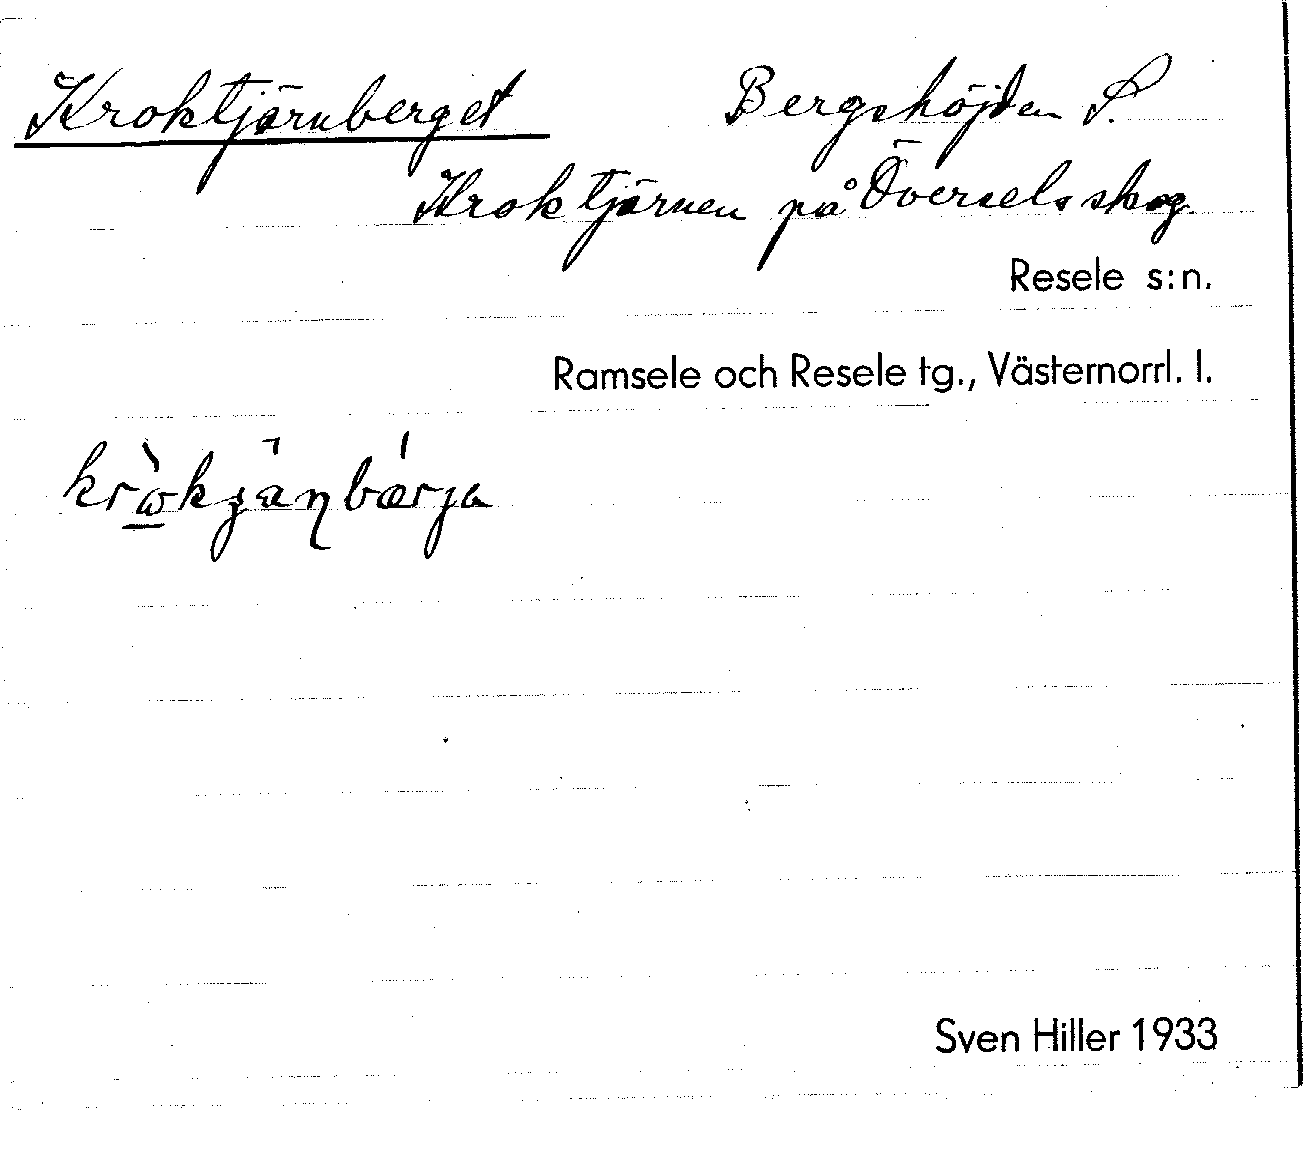 Kroktjärnberget Bergshöjden S.
Kroktjärnen på Överselsskog
Resele s:n.
Ramsele och Resele tg., Västernorrl. l.
Sven Hiller 1933